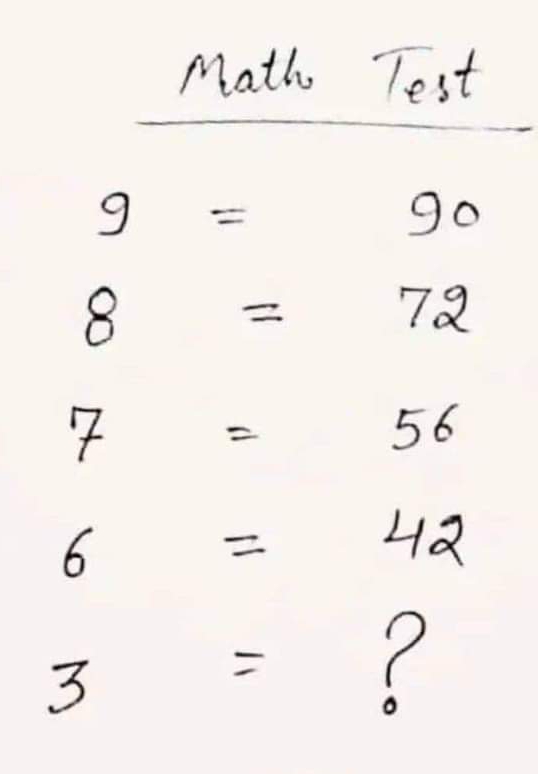 Math Test
9 = 90
8 = 72
7 = 56
6 = 42
3 = ?